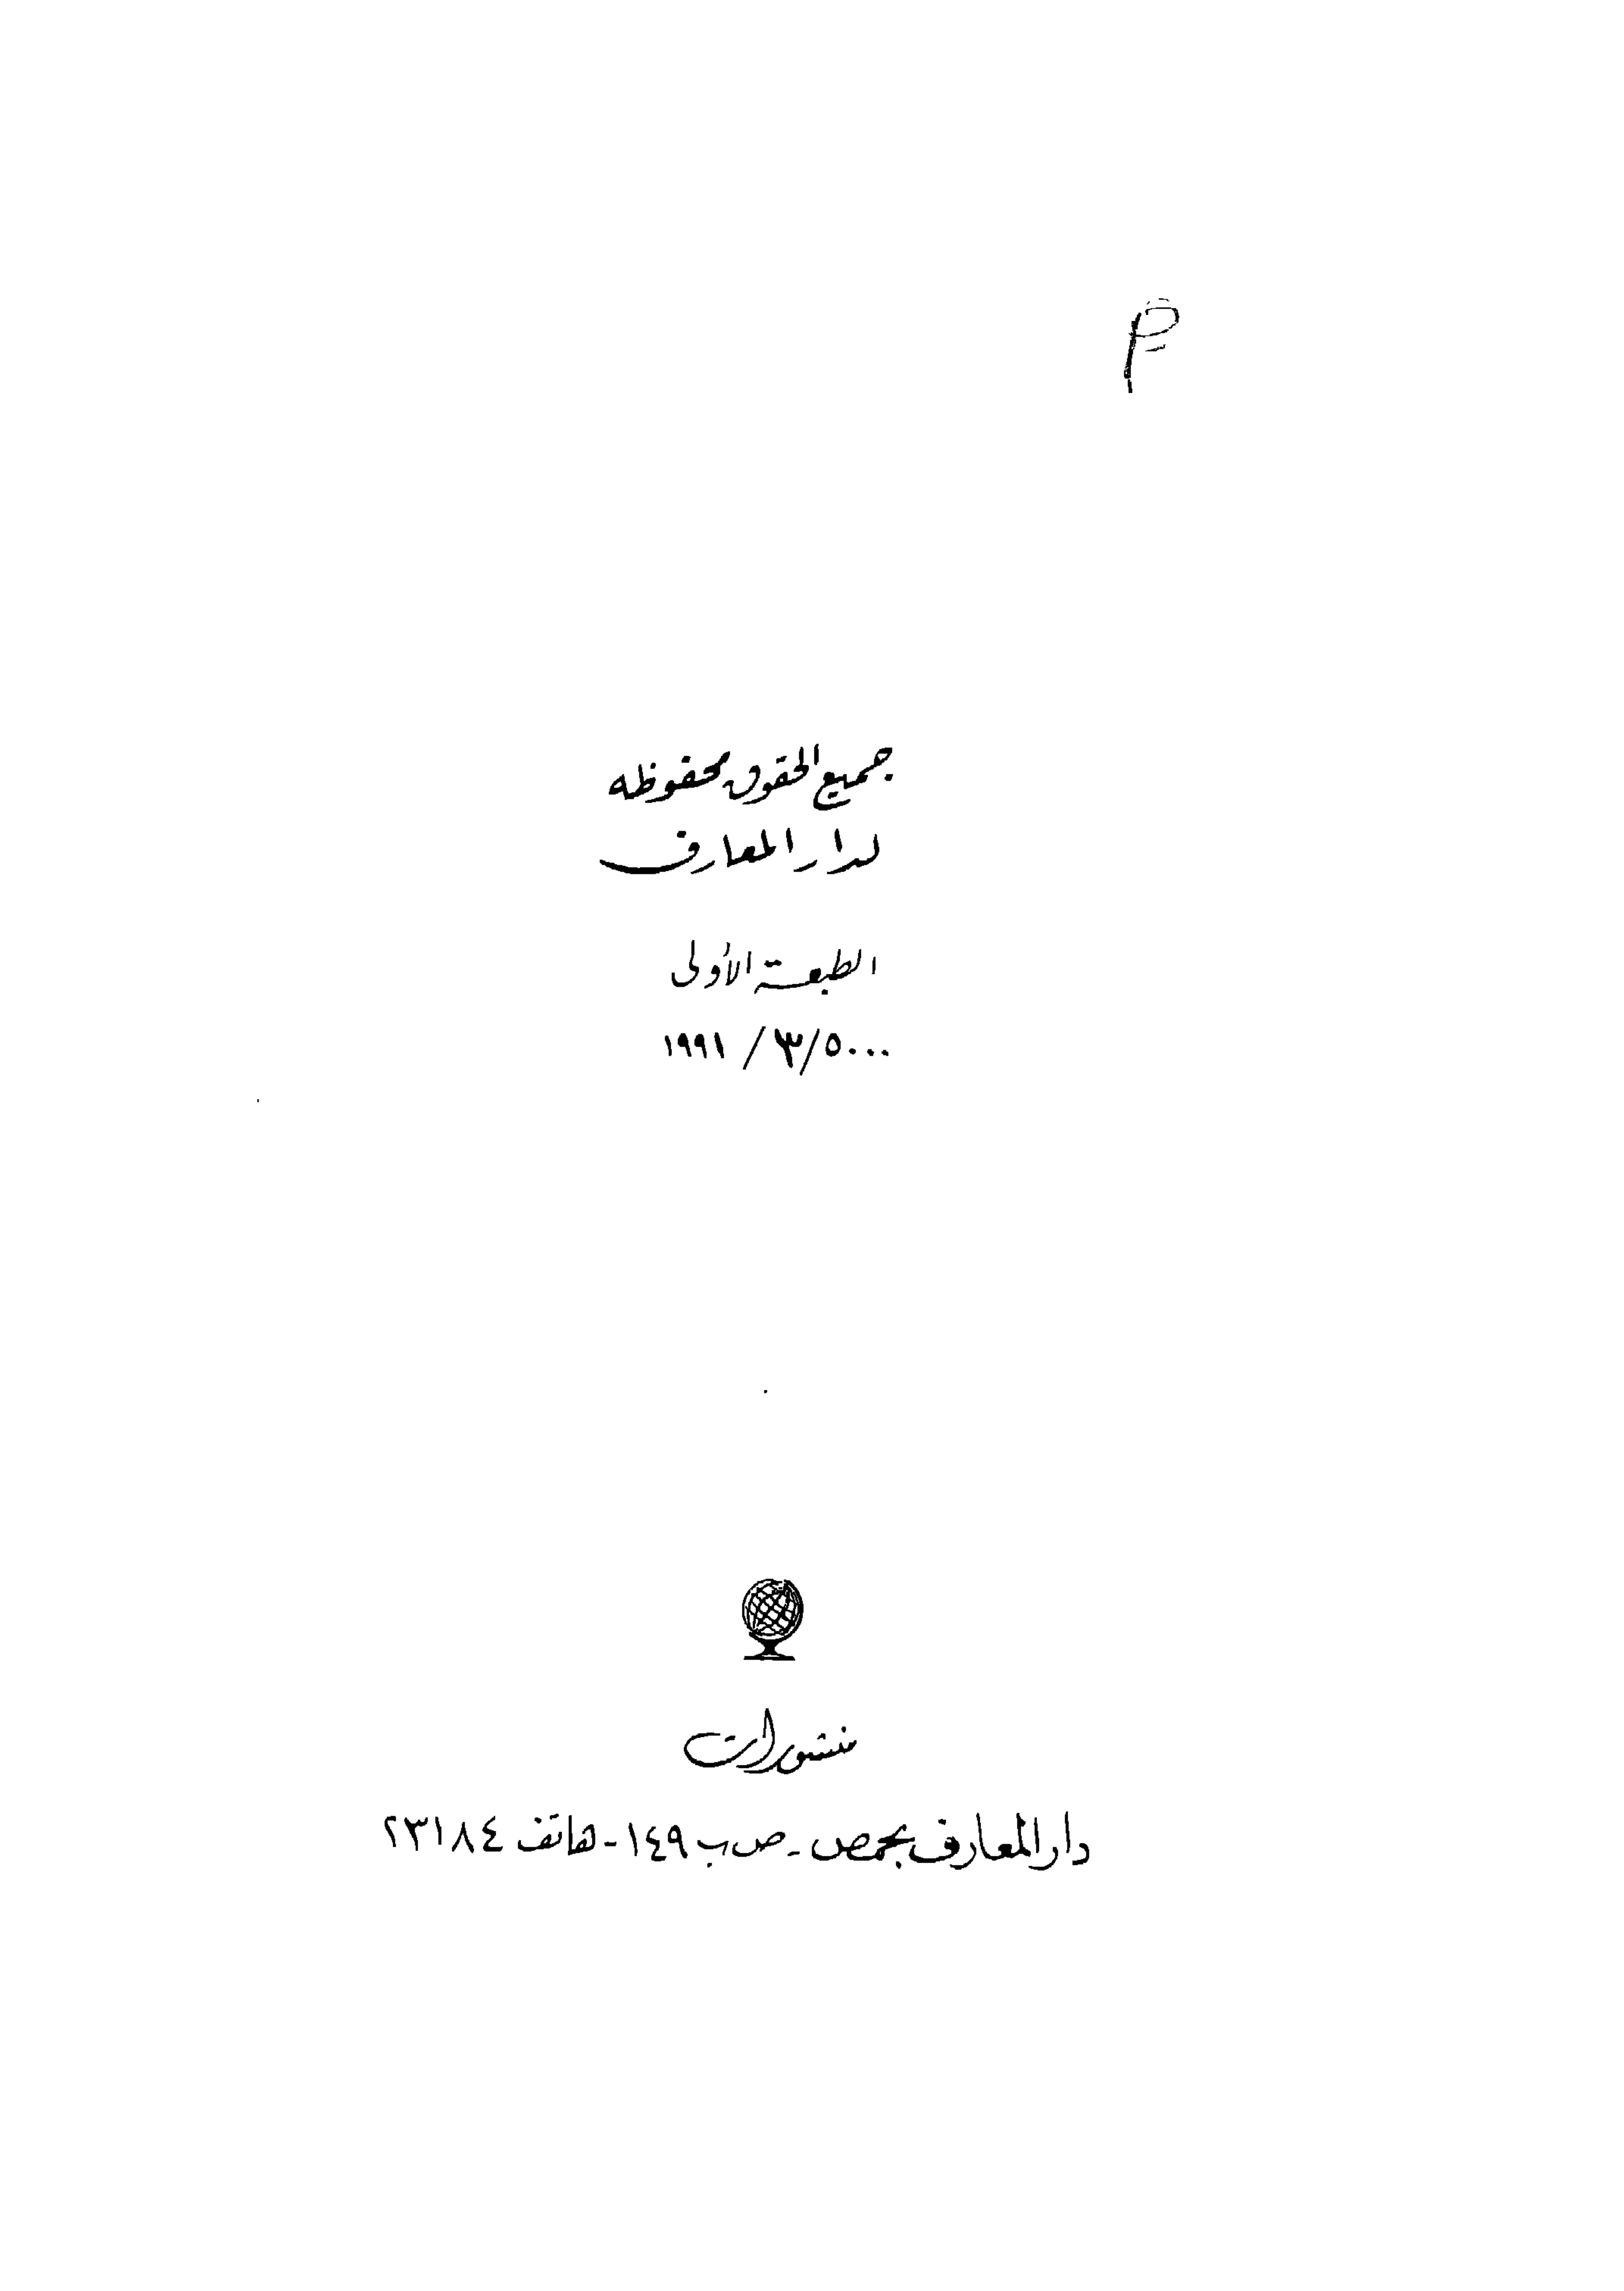 جميع الحقوق محفوظه
لدار المعارف
الطبعة الأولى
٥٠٠٠/٣/١٩٩١
منشورات
دار المعارف بحمص - ص ب ١٤٩ - هاتف ٢٣١٨٤